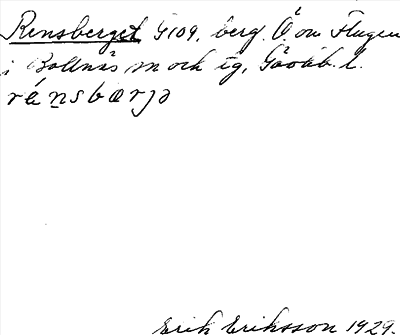 Rensberget G109. berg. Ö. om Flugen
i Bollnäs sn och tg, Gävleb. l.
rénsbærjə
Erik Eriksson 1929.